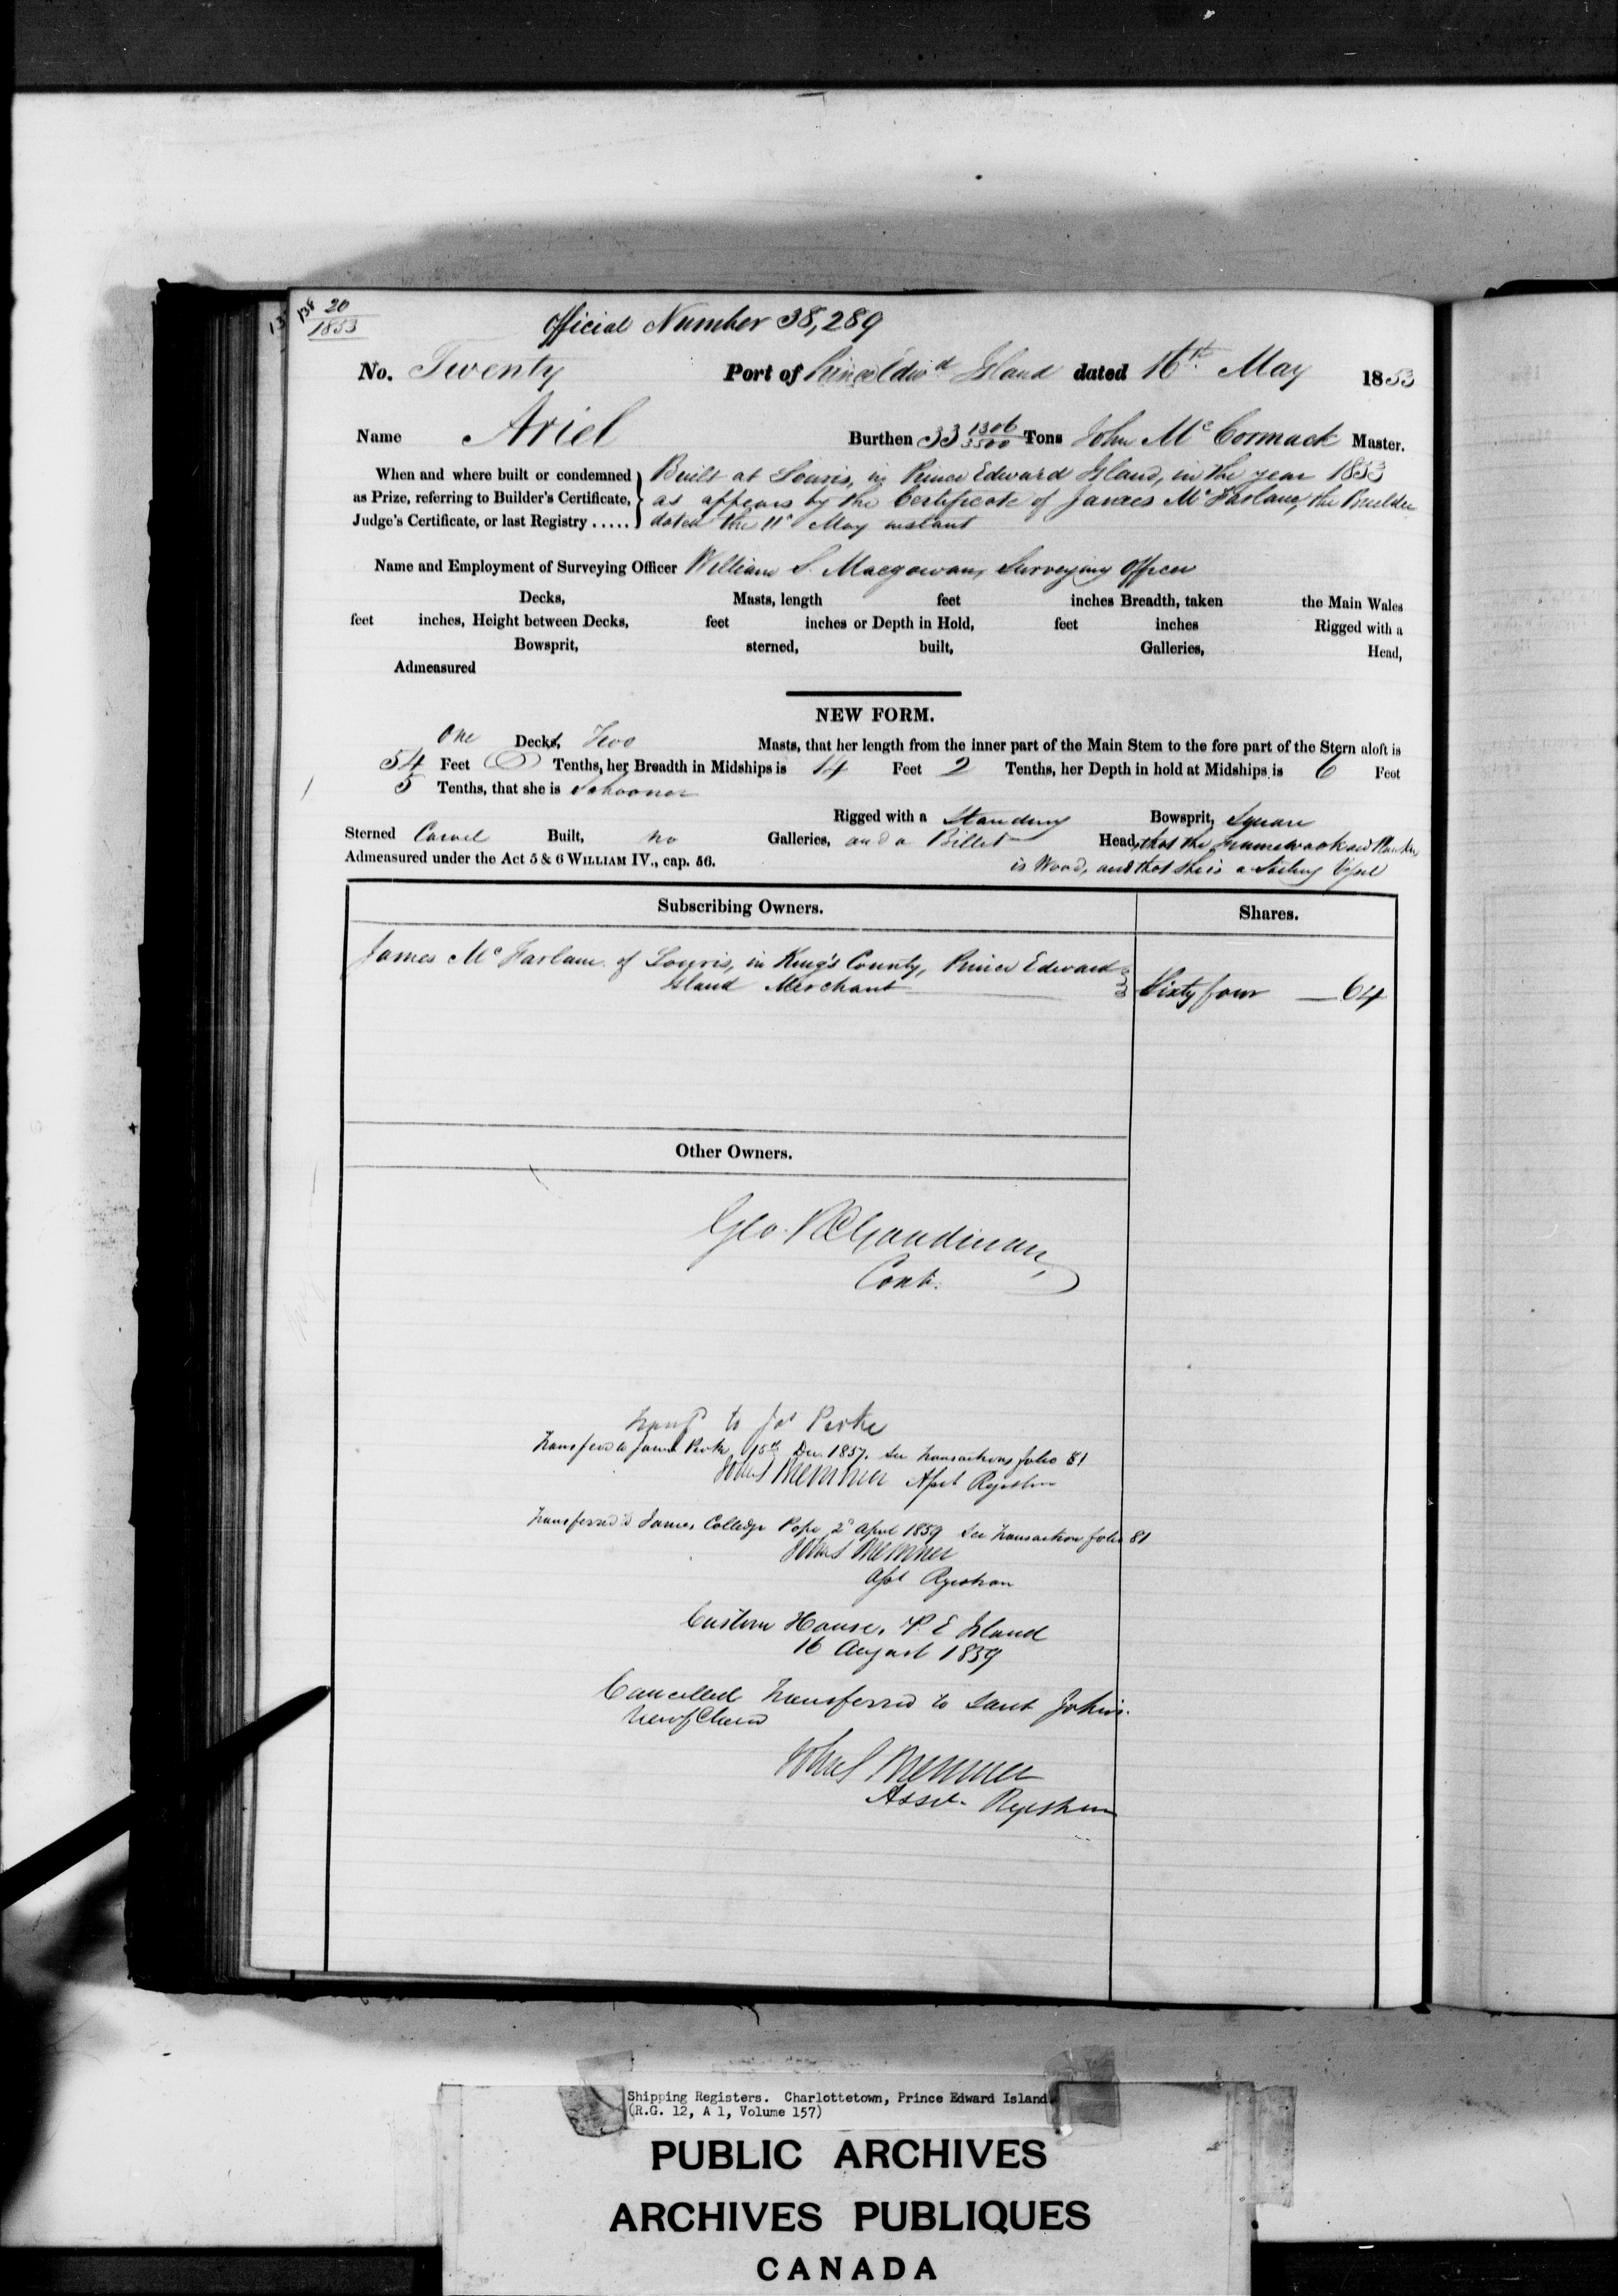 138 20
1853
Official Number 38,289
No. Twenty Port of Prince Edwd Island dated 16th May 1853
Name Ariel Burthen 33 1306/3500 Tons John Mc Cormack Master.
When and where built or condemned as Prize, referring to Builder's Certificate, Judge's Certificate, or last Registry .....
Built at Souris, in Prince Edward Island, in the year 1853
as appears by the Certificate of James Mc Farlane, the Builder
dated the 11th May instant
Name and Employment of Surveying Officer William S. Macgowan, Surveying Officer
Decks, Masts, length feet inches Breadth, taken the Main Wales
feet inches, Height between Decks, feet inches or Depth in Hold, feet inches Rigged with a
Bowsprit, sterned, built, Galleries, Head,
Admeasured
NEW FORM.
One Deck, Two Masts, that her length from the inner part of the Main Stem to the fore part of the Stern aloft is
54 Feet 0 Tenths, her Breadth in Midships is 14 Feet 2 Tenths, her Depth in hold at Midships is 6 Feet
5 Tenths, that she is Schooner
Rigged with a Standing Bowsprit, Square
Sterned Carvel Built, no Galleries, and a Billet Head, that the framework and Planking
Admeasured under the Act 5 & 6 WILLIAM IV., cap. 56. is Wood, and that she is a Sailing Vessel
Subscribing Owners. Shares.
James Mc Farlane of Souris, in King's County, Prince Edward
Island Merchant Sixty four — 64
Other Owners.
Geo. R Goodman
Cont.
Transfd to Jas Peake
Transferd to James Peake 15th Dec. 1857. See Transactions folio 81
Asst Registrar
Transferred to James Colledge Pope 2d April 1859 See Transaction folio 81
Asst Registrar
Custom House, P. E Island
16 August 1859
Cancelled Transferred to Saint John's
Newfld
Asst. Registrar
Shipping Registers. Charlottetown, Prince Edward Island
(R.G. 12, A 1, Volume 157)
PUBLIC ARCHIVES
ARCHIVES PUBLIQUES
CANADA